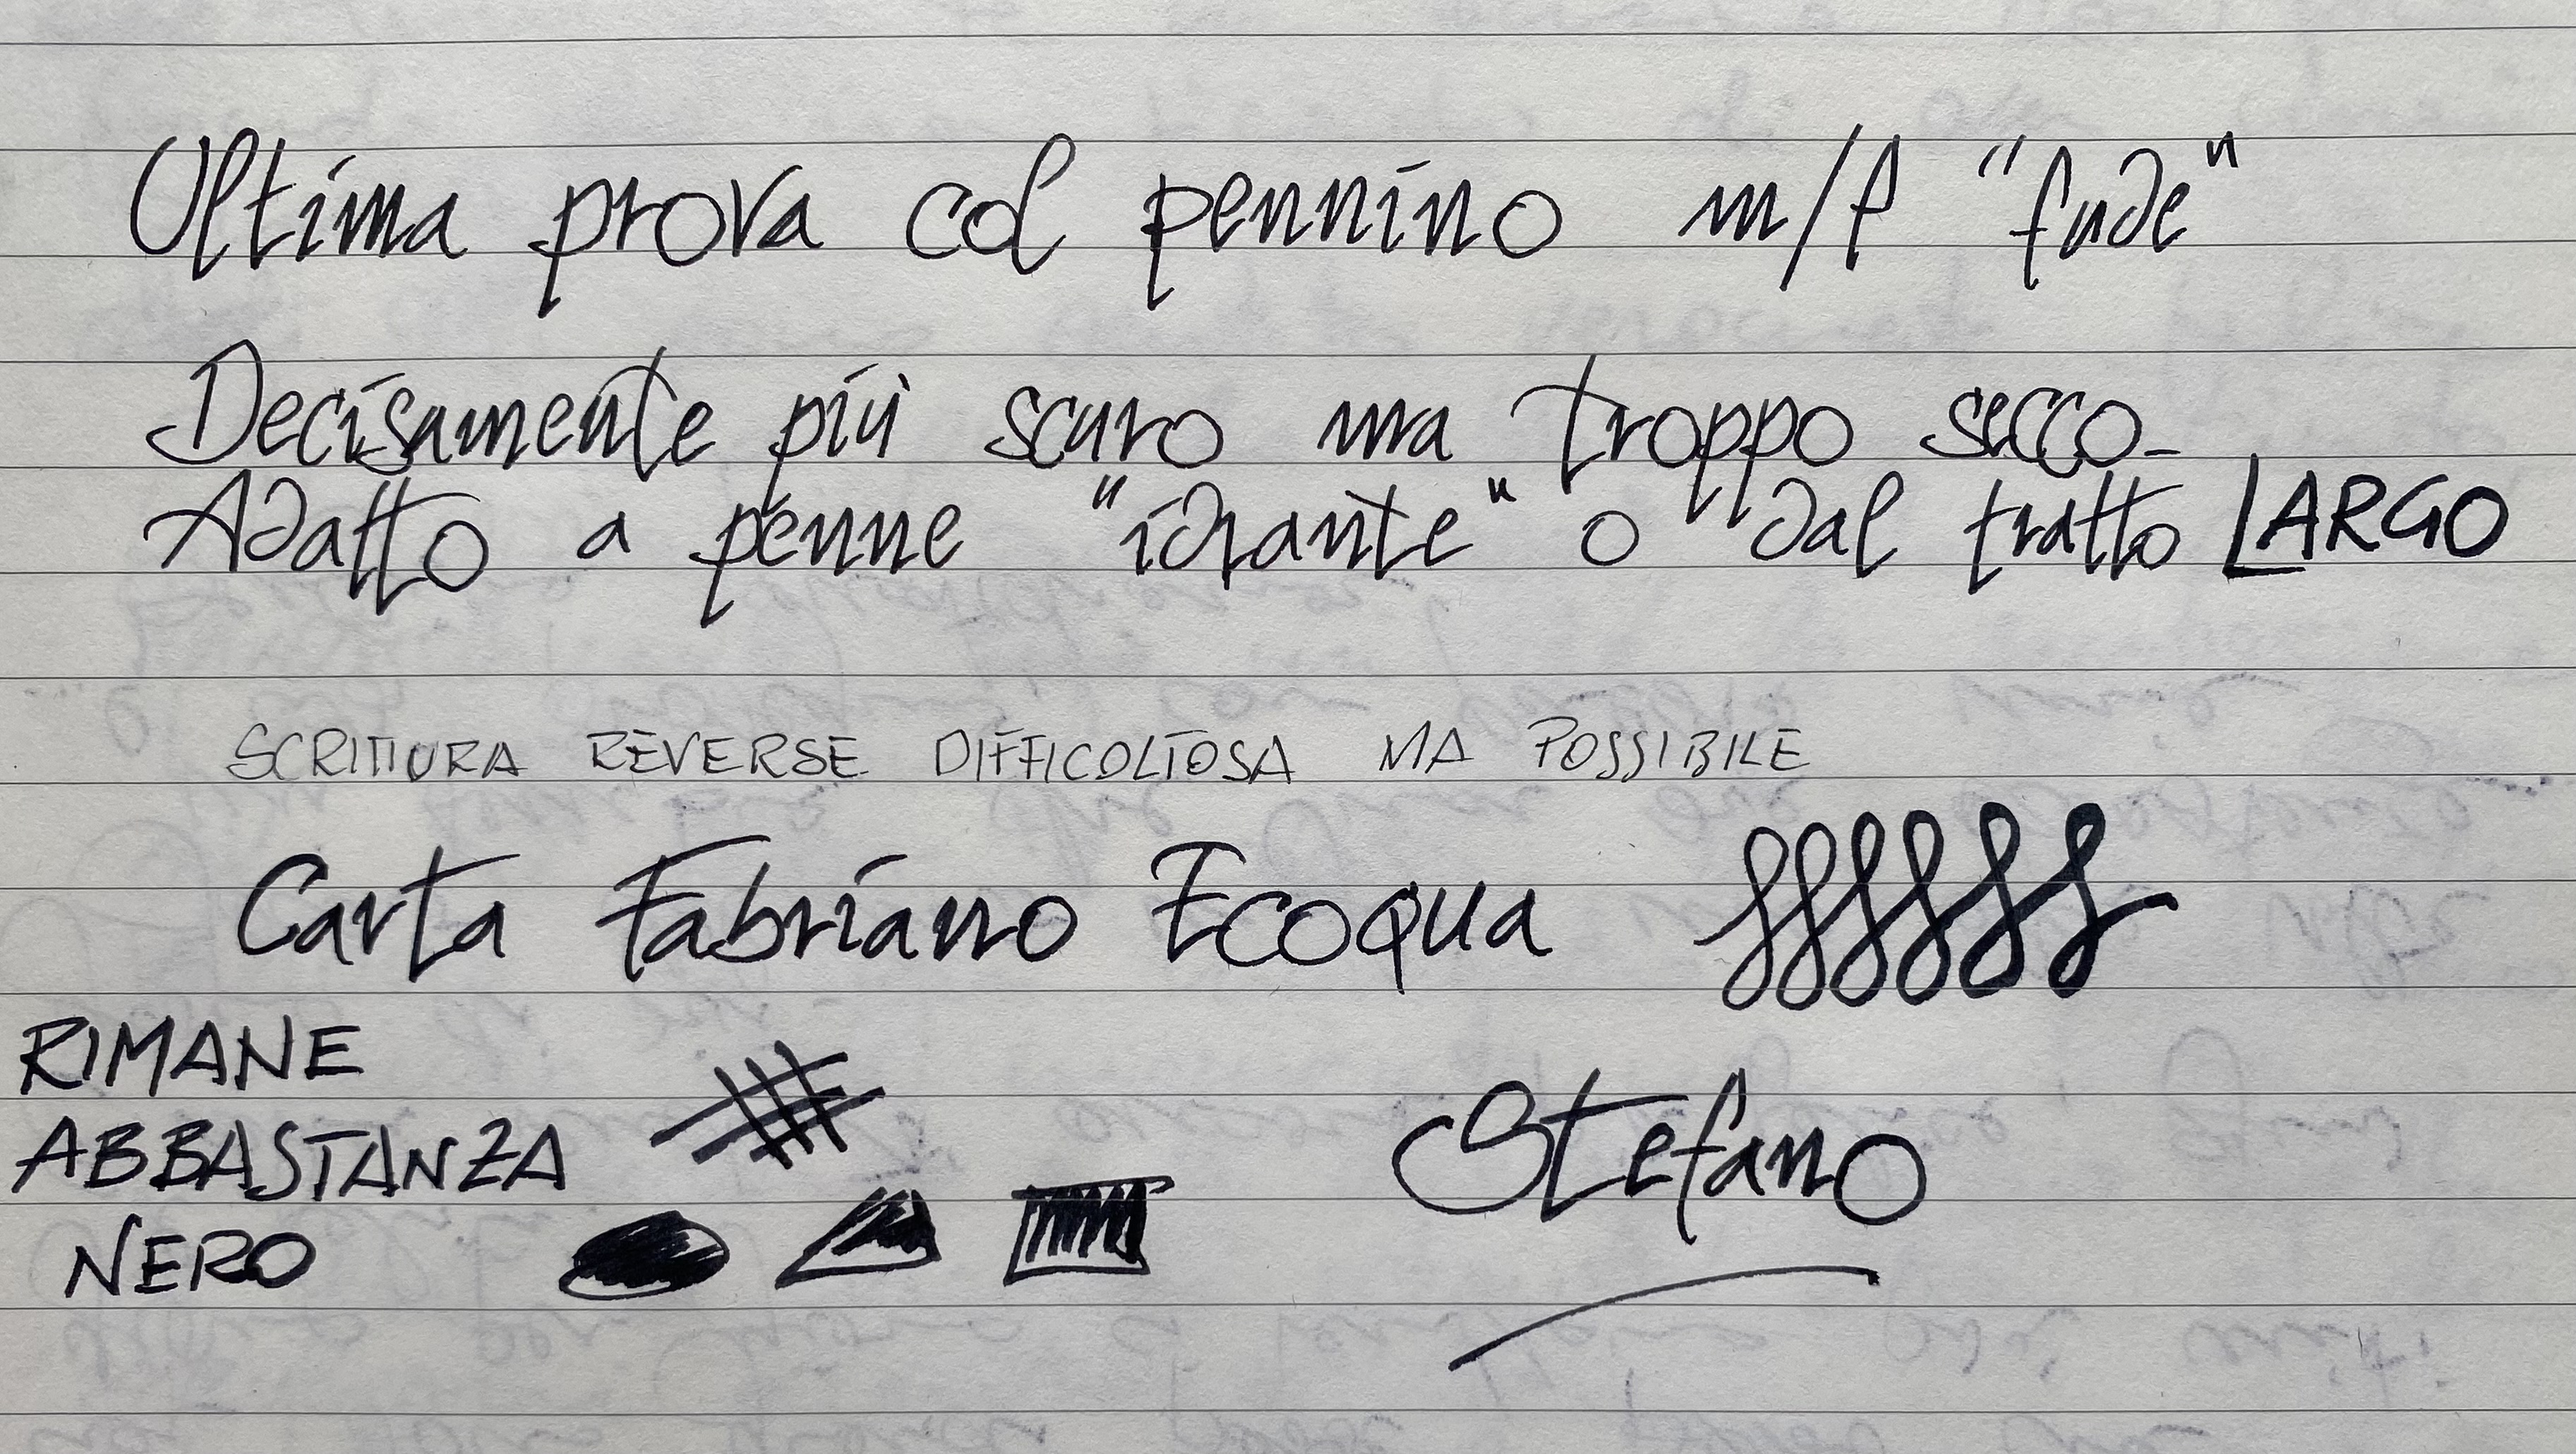 Ultima prova col pennino m/f "fude"
Decisamente più scuro ma troppo secco-
Adatto a penne "idrante" o dal tratto LARGO
SCRITTURA REVERSE DIFFICOLTOSA MA POSSIBILE
Carta Fabriano Ecoqua
RIMANE
ABBASTANZA
NERO
Stefano